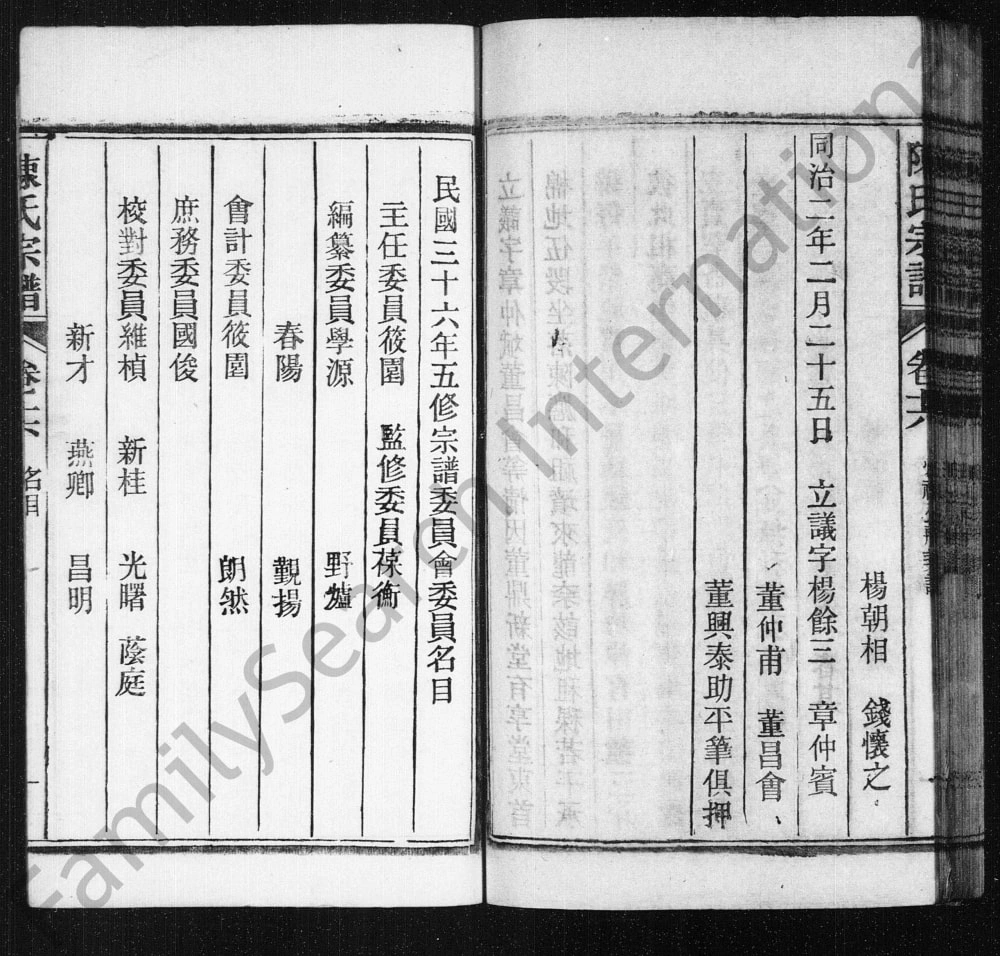 楊朝相　錢懷之
同治二年二月二十五日　立議字楊餘三　章仲賓
董仲甫　董昌會
董興泰助平筆俱押
陳氏宗譜　卷之六
民國三十六年五修宗譜委員會委員名目
主任委員筱園　監修委員葆衡
編纂委員學源　野爐
春陽　覲揚
會計委員筱園　朗然
庶務委員國俊
校對委員維楨　新桂　光曙　蔭庭
新才　燕卿　昌明
陳氏宗譜　卷之六　名目　一
FamilySearch International